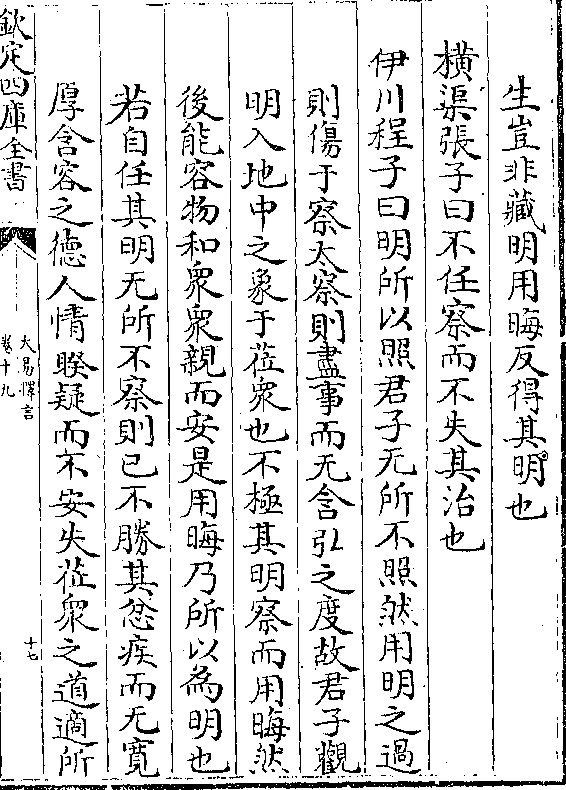 生豈非藏明用晦反得其明也
橫渠張子曰不任察而不失其治也
伊川程子曰明所以照君子无所不照然用明之過
則傷于察太察則盡事而无含弘之度故君子觀
明入地中之象于莅衆也不極其明察而用晦然
後能容物和衆衆親而安是用晦乃所以為明也
若自任其明无所不察則已不勝其忿疾而无寬
厚含容之德人情睽疑而不安失莅衆之道適所
欽定四庫全書
大易擇言
卷十九
十七